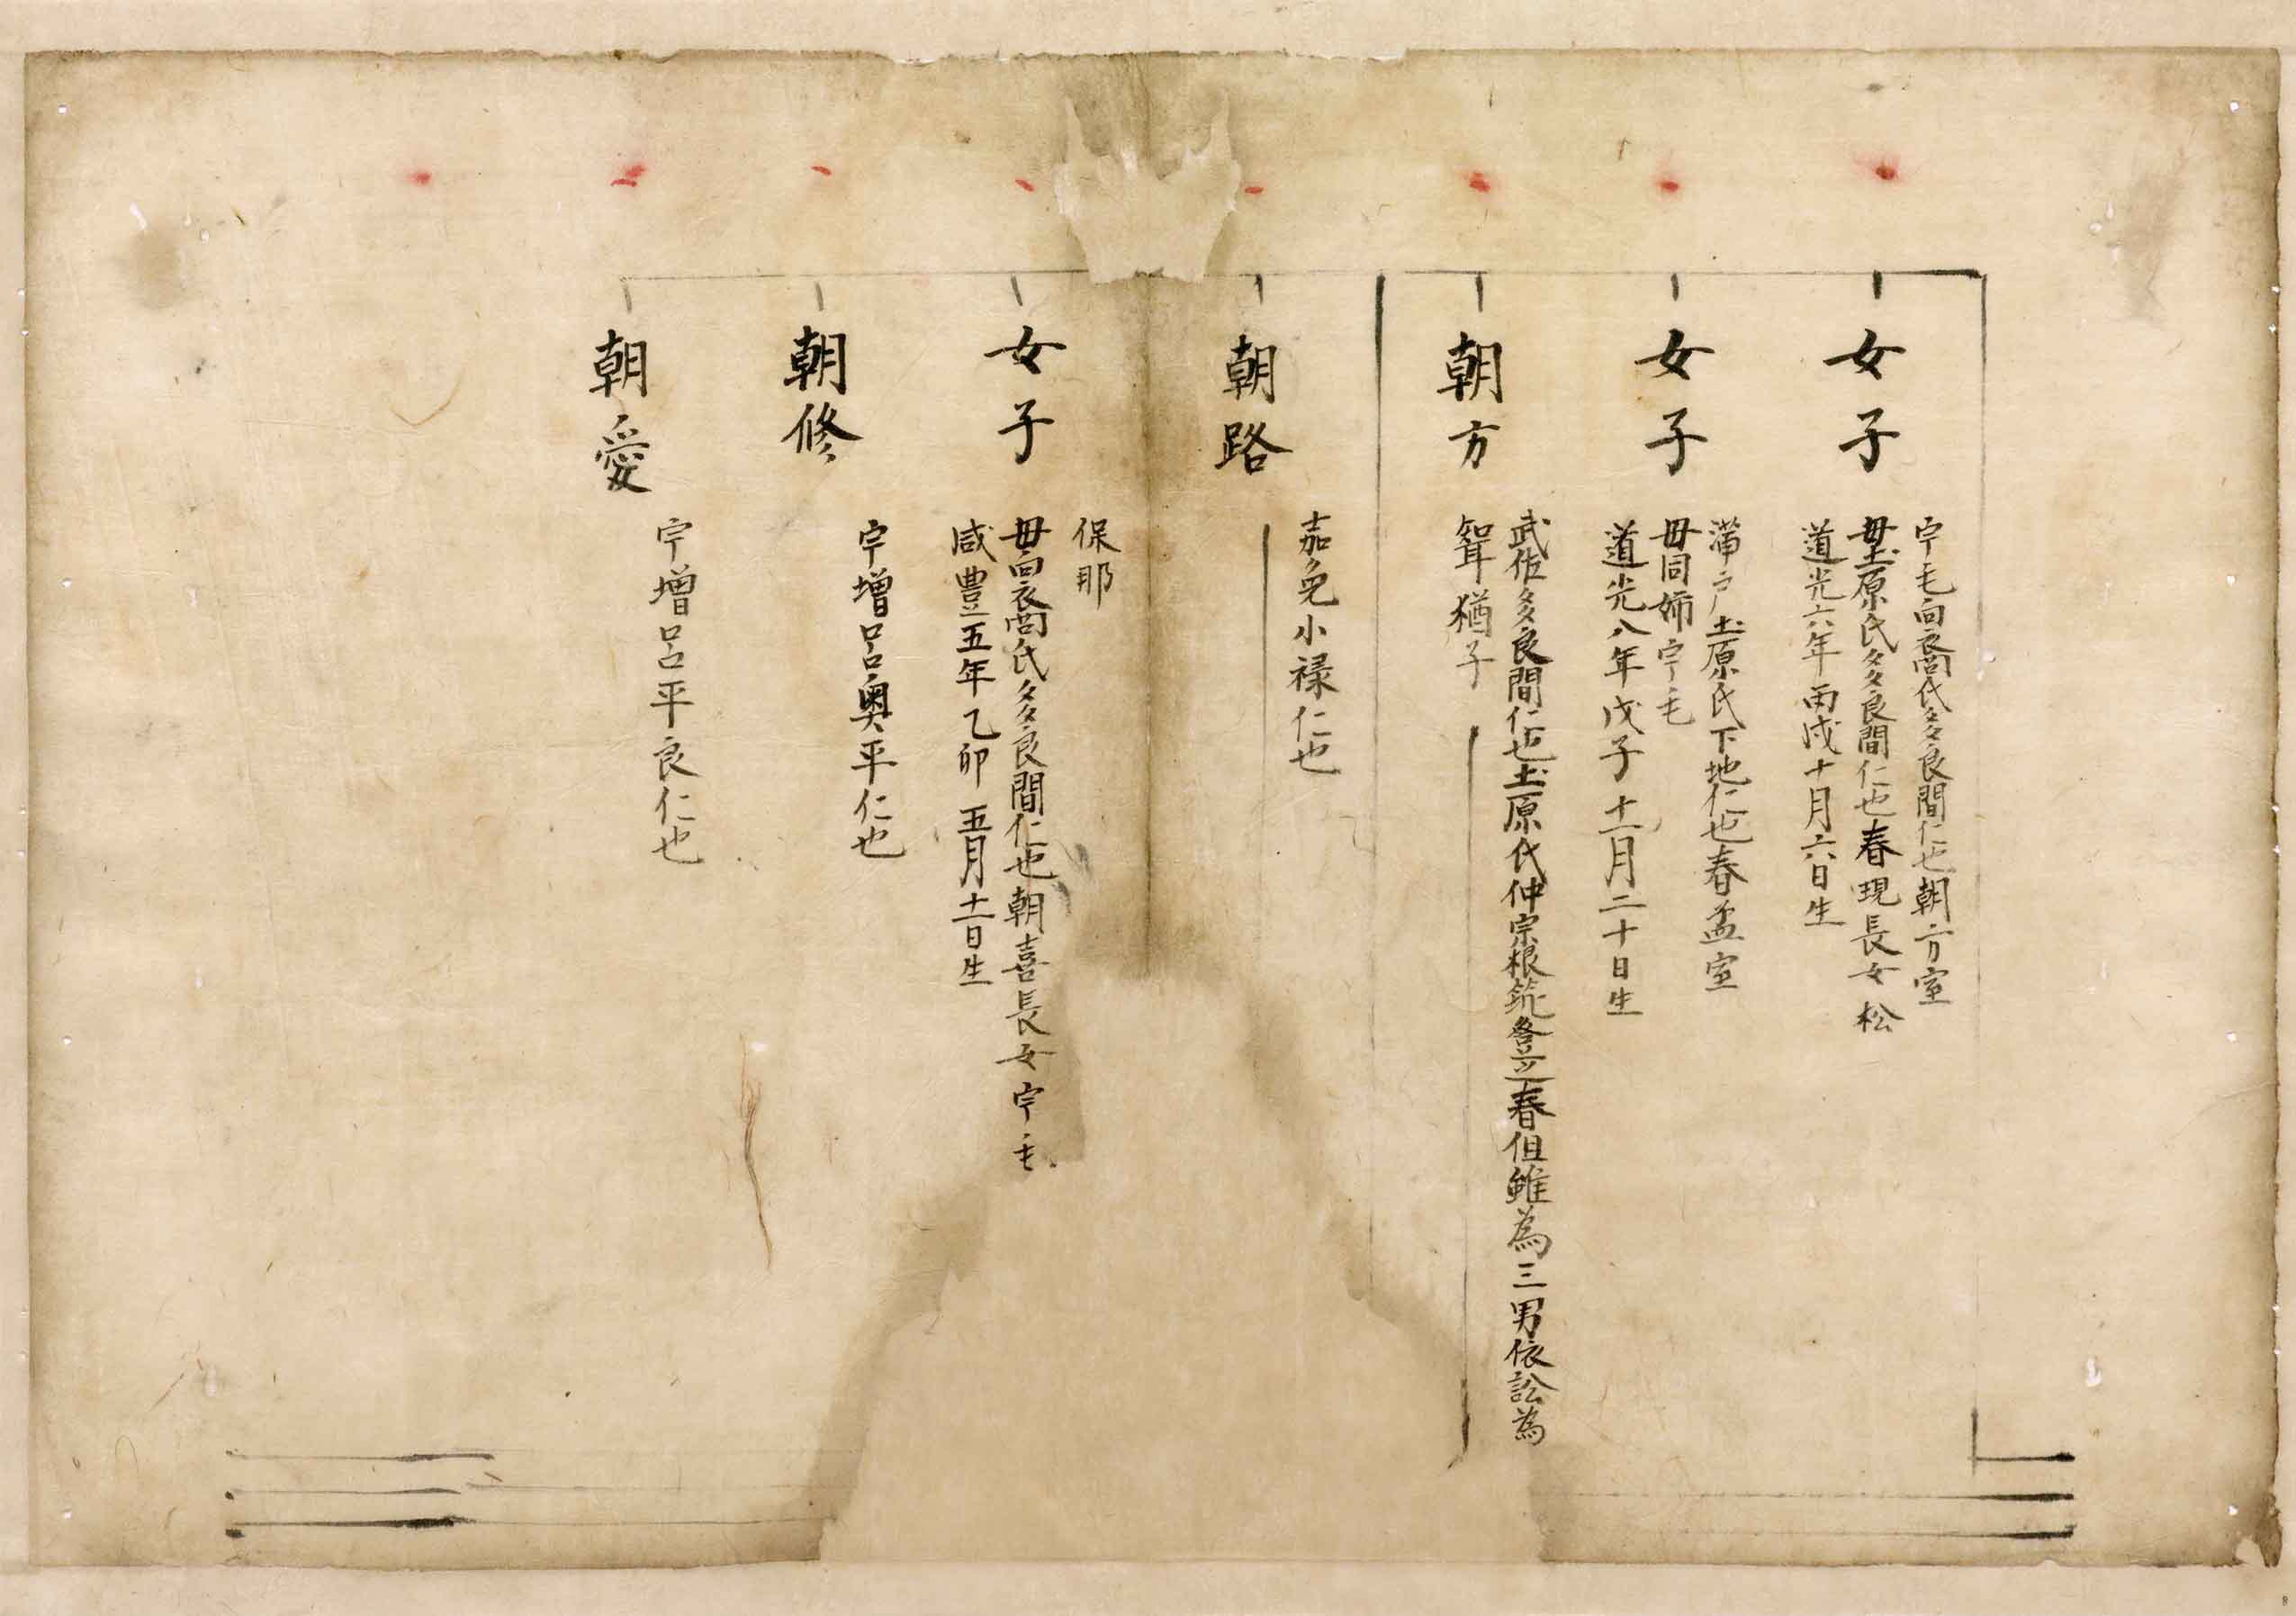 女子
宇毛向裔氏多良間仁也朝方室
母土原氏多良間仁也春現長女松
道光六年丙戌十月六日生
女子
蒲戸土原氏下地仁也春孟室
母同姉宇毛
道光八年戊子十一月二十日生
朝方
武佐多良間仁也土原氏仲宗根筑登之春但雖為三男依訟為
聟猶子
朝路
嘉免小禄仁也
女子
保那
母向裔氏多良間仁也朝喜長女宇毛
咸豊五年乙卯五月十一日生
朝修
宇増呂奥平仁也
朝愛
宇増呂平良仁也